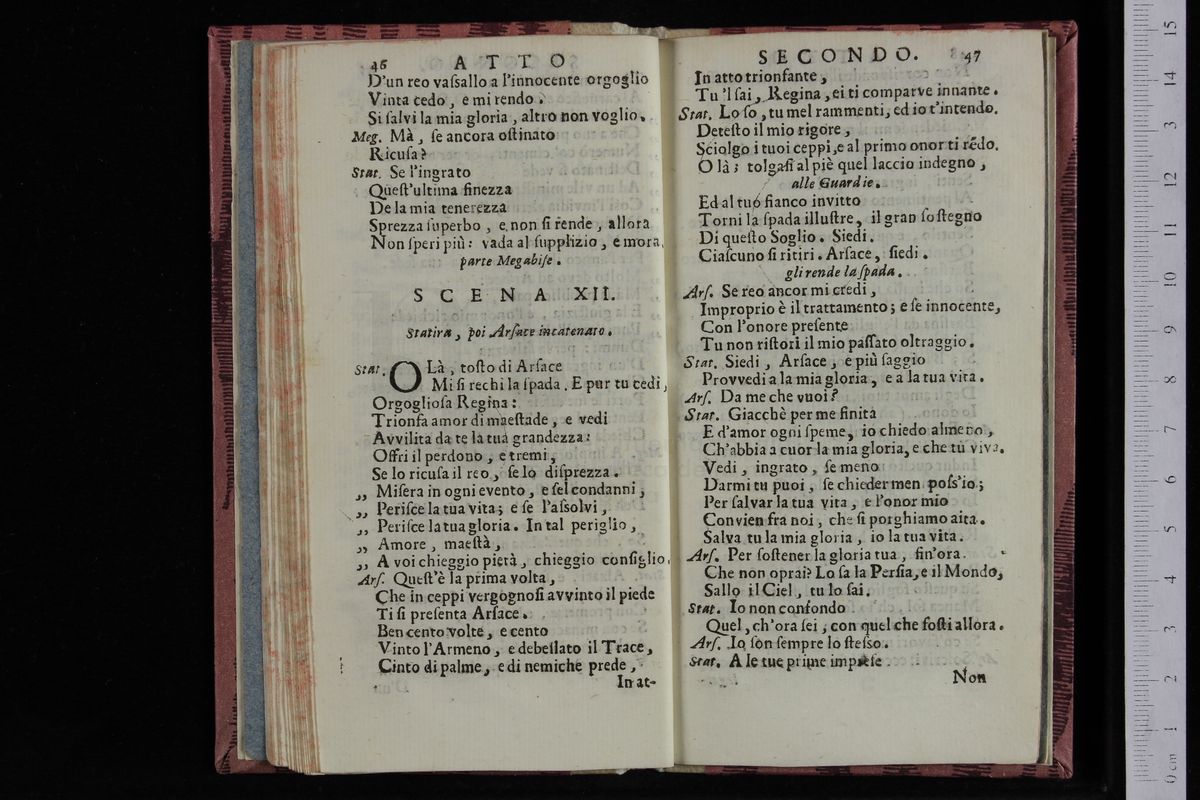 46 ATTO
D'un reo vaſsallo a l'innocente orgoglio
Vinta cedo, e mi rendo.
Si ſalvi la mia gloria, altro non voglio.
Meg. Mà, ſe ancora oſtinato
Ricuſa?
Stat. Se l'ingrato
Queſt'ultima finezza
De la mia tenerezza
Sprezza ſuperbo, e non ſi rende, allora
Non ſperi più: vada al ſupplizio, e mora.
parte Megabiſe.
SCENA XII.
Statira, poi Arſace incatenato.
Stat. OLà, toſto di Arſace
Mi ſi rechi la ſpada. E pur tu cedi,
Orgoglioſa Regina:
Trionfa amor di maeſtade, e vedi
Avvilita da te la tua grandezza:
Offri il perdono, e tremi,
Se lo ricuſa il reo, ſe lo diſprezza.
,, Miſera in ogni evento, e ſel condanni,
,, Periſce la tua vita; e ſe l'aſsolvi,
,, Periſce la tua gloria. In tal periglio,
,, Amore, maeſtà,
,, A voi chieggio pietà, chieggio conſiglio.
Arſ. Queſt'è la prima volta,
Che in ceppi vergognoſi avvinto il piede
Ti ſi preſenta Arſace.
Ben cento volte, e cento
Vinto l'Armeno, e debellato il Trace,
Cinto di palme, e di nemiche prede,
In at-
SECONDO. 47
In atto trionfante,
Tu 'l ſai, Regina, ei ti comparve innante.
Stat. Lo ſo, tu mel rammenti, ed io t'intendo.
Deteſto il mio rigore,
Sciolgo i tuoi ceppi, e al primo onor ti rēdo.
O là; tolgaſi al piè quel laccio indegno,
alle Guardie.
Ed al tuo fianco invitto
Torni la ſpada illuſtre, il gran ſoſtegno
Di queſto Soglio. Siedi.
Ciaſcuno ſi ritiri. Arſace, ſiedi.
gli rende la ſpada.
Arſ. Se reo ancor mi credi,
Improprio è il trattamento; e ſe innocente,
Con l'onore preſente
Tu non riſtori il mio paſſato oltraggio.
Stat. Siedi, Arſace, e più ſaggio
Provvedi a la mia gloria, e a la tua vita.
Arſ. Da me che vuoi?
Stat. Giacchè per me finita
E d'amor ogni ſpeme, io chiedo almeno,
Ch'abbia a cuor la mia gloria, e che tu viva.
Vedi, ingrato, ſe meno
Darmi tu puoi, ſe chieder men poſs'io;
Per ſalvar la tua vita, e l'onor mio
Convien fra noi, che ſi porghiamo aita.
Salva tu la mia gloria, io la tua vita.
Arſ. Per ſoſtener la gloria tua, ſin'ora
Che non oprai? Lo ſa la Perſia, e il Mondo,
Sallo il Ciel, tu lo ſai.
Stat. Io non confondo
Quel, ch'ora ſei, con quel che foſti allora.
Arſ. Io ſon ſempre lo ſteſso.
Stat. A le tue prime impreſe
Non